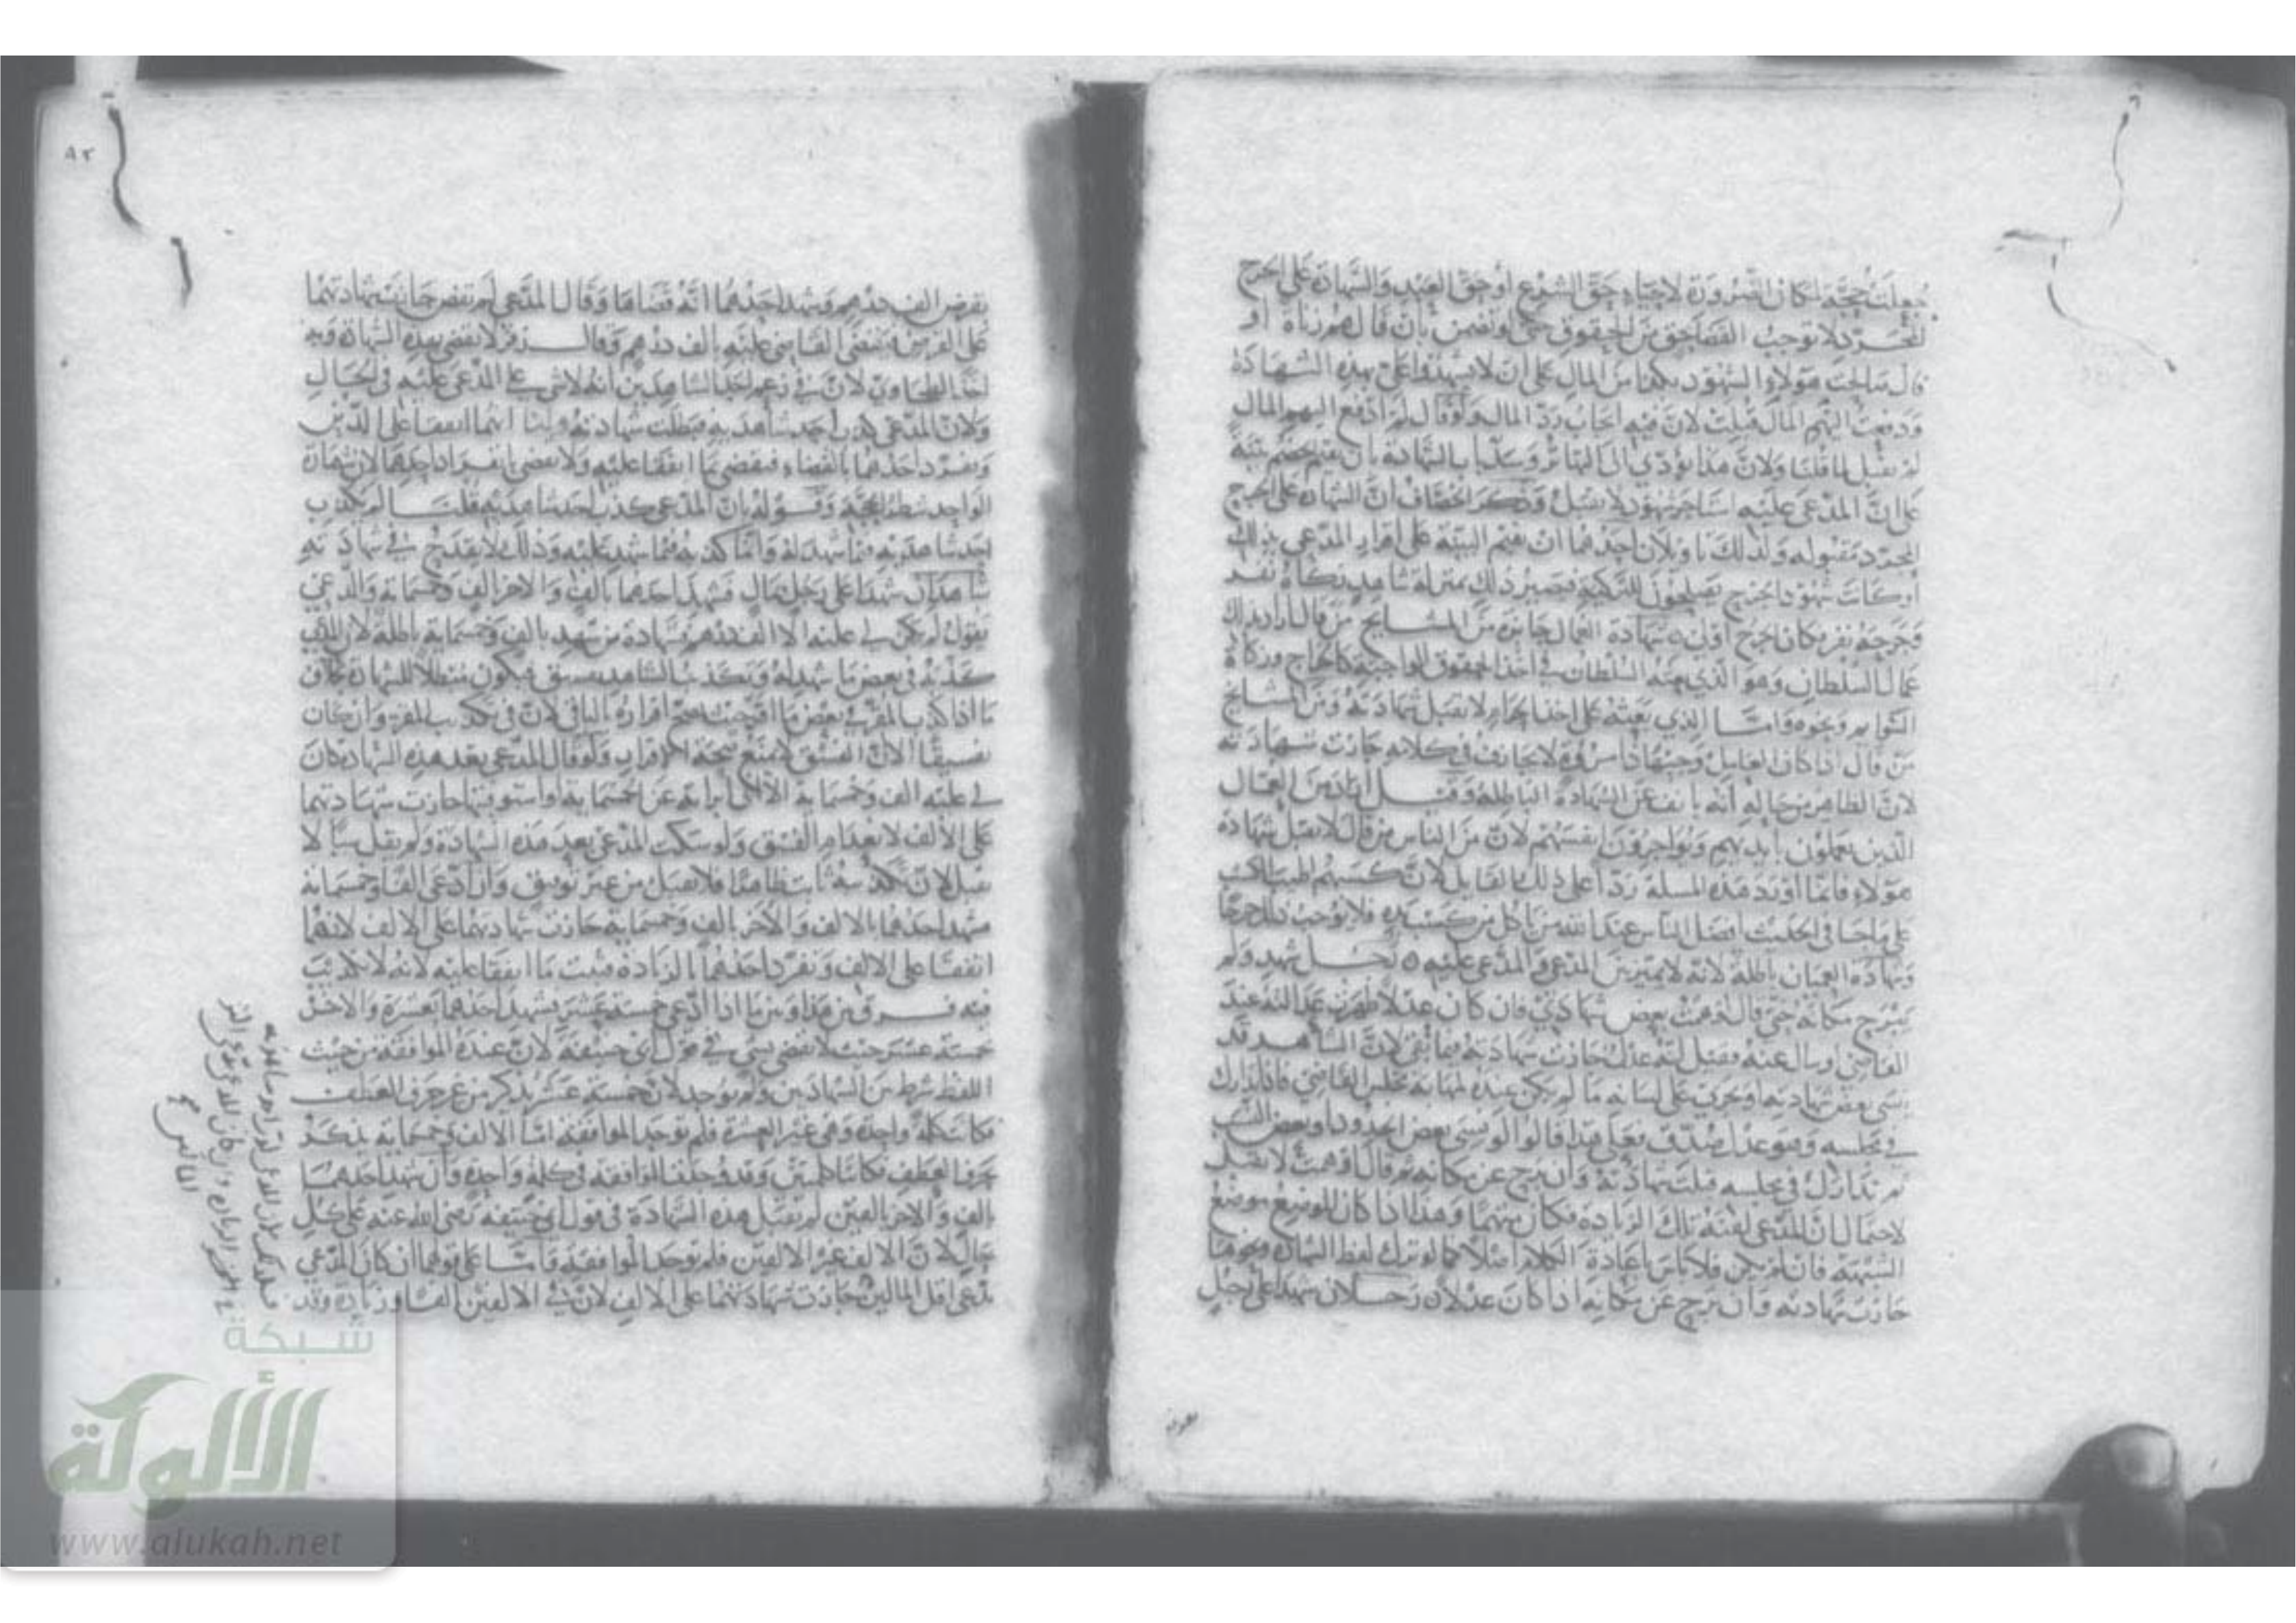 جعلت حجة لمكان الضرورة لاحياء حق الشرع او حق العبد والشهادة على الجرح
المجرد لا توجب القضا بحق من الحقوق حتى لو تضمن بان قال هم زناة او
قال صالحت هؤلاء الشهود بكذا من المال على ان لا يشهدوا على بهذه الشهادة
ودفعت اليهم المال قبلت لان فيه ايجاب رد المال ولو قال لم ادفع اليهم المال
لم تقبل لما قلنا ولان هذا يؤدي الى التهاتر وسد باب الشهادة بان يقيم الخصم بينة
على ان المدعى عليه استاجر شهود لا تقبل وذكر الخصاف ان الشهادة على الجرح
المجرد مقبولة وكذلك اذا ولان احدهما ان يقيم البينة على اقرار المدعي بذلك
او كانت شهود الجرح يصلحون للتزكية فيصير ذلك بمنزلة شاهد زكاه نفر
وجرحه نفر كان الجرح اولى ه شهادة العمال جائزة من المشايخ من قال اراد بذلك
عمال السلطان وهو الذي يعينه السلطان في اخذ الحقوق الواجبة كالخراج وزكاة
السوايم ونحوه واما الذي يعينه على اخذ الحرام لا تقبل شهادته ومن المشايخ
من قال اذا كان العامل وجيها ذا مروة لا يجازف في كلامه جازت شهادته
لان الظاهر من حاله انه يانف عن الشهادة الباطلة وقيل اراد من العمال
الذين يعملون بايديهم ويؤاجرون انفسهم لان من الناس من قال لا تقبل شهادة
هؤلاء فانما اورد هذه المسلة ردا على ذلك القايل لان كسبهم اطيب المكاسب
على ما جا في الحديث افضل الناس عند الله من ياكل من كسب يده فلا يوجب ذلك جرحا
وشهادة العميان باطلة لانه لا يميز بين المدعي والمدعى عليه ه رجل شهد ولم
يبرح مكانه حتى قال اوهمت بعض شهادتي فان كان عدلا ظهرت عدالته عند
القاضي او سال عنه فقيل انه عدل جازت شهادته فيما بقى لان الشاهد قد
ينسى بعض شهادته او يجري على لسانه ما لم يكن عنده لمهابة مجلس القاضي فاذا تدارك
في مجلسه وهو عدل صدق فعلى هذا قالوا لو نسي بعض الحدود او بعض النسب
ثم تدارك في مجلسه قبلت شهادته وان برح عن مكانه ثم قال اوهمت لا تقبل
لاحتمال ان المدعي لقنه تلك الزيادة فكان متهما وهذا اذا كان الموضع موضع
الشبهة فان لم يكن فلا باس باعادة الكلام مثلا كما لو ترك لفظ الشهادة ونحوها
جازت شهادته وان برح عن مكانه اذا كان عدلا ه رجلان شهدا على رجل
بقرض الف درهم وشهد احدهما انه قضاها وقال المدعي لم تقض جازت شهادتهما
على القرض فيقضي القاضي عليه بالف درهم وقال زفر لا تقضى بهذه الشهادة وبه
اخذ الطحاوي لان في زعم احد الشاهدين انه لا شي على المدعى عليه في الحال
ولان المدعي كذب احد شاهديه فبطلت شهادته ولنا انهما اتفقا على الدين
وتفرد احدهما بالقضاء فيقضى بما اتفقا عليه ولا يقضى بانفراد احدهما لان شهادة
الواحد شطر الحجة وقوله بان المدعي كذب احد شاهديه قلنا لم يكذب
احد شاهديه فيما شهد له وانما كذبه فيما شهد عليه وذلك لا يقدح في شهادته
شاهدان شهدا على رجل بمال فشهد احدهما بالف والاخر الف وخمسماية والمدعي
يقول لم يكن لي عليه الا الف درهم فشهادة من شهد بالف وخمسماية باطلة لان المدعي
كذبه في بعض ما شهد له وتكذيب الشاهد تفسيق فيكون مبطلا للشهادة بخلاف
ما اذا كذب المقر في بعض ما اقر حيث يصح اقراره بالباقي لان في تكذيب المقر وان كان
تفسيقا الا ان الفسق لا يمنع صحة الاقرار ولو قال المدعي بعد هذه الشهادة كان
لي عليه الف وخمسماية الا اني ابراته عن الخمسماية او استوفيتها جازت شهادتهما
على الالف لانعدام الفسق ولو سكت المدعي بعد هذه الشهادة ولم يقل شيا لا
تقبل لان تكذيبه ثابت ظاهرا فلا يقبل من غير توفيق وان ادعى الفا وخمسماية
شهد احدهما بالالف والاخر بالف وخمسماية جازت شهادتهما على الالف لانهما
اتفقا على الالف وتفرد احدهما بالزيادة فثبت ما اتفقا عليه لانه لا تكذيب
فيه فرق بين هذا وبين ما اذا ادعى خمسة عشر يشهد احدهما بعشرة والاخر
خمسة عشر حيث لا تقضى بشي في قول ابي حنيفة لان عنده الموافقة من حيث
اللفظ شرط بين الشهادتين ولم توجد لان خمسة عشر يذكر من غير حرف العطف
فكانت كلمة واحدة وهي غير العشرة فلم توجد الموافقة اما الالف وخمسماية يذكر
بحرف العطف فكانتا كلمتين وقد وجدنا الموافقة في كلمة واحدة وان شهد احدهما
بالف والاخر بالفين لم تقبل هذه الشهادة في قول ابي حنيفة رضي الله عنه على كل
حال لان الالف غير الالفين فلم توجد الموافقة فاما على قولهما ان كان المدعي
يدعي اقل المالين جازت شهادتهما على الالف لان في الالفين الفا وزيادة وقد